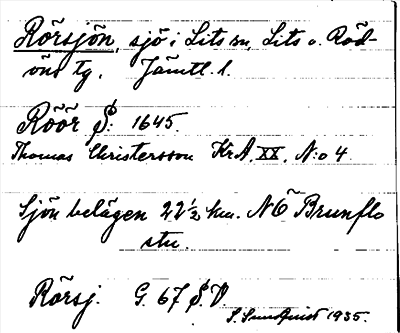 Rörsjön, sjö i Lits sn, Lits o. Röd-
öns tg. Jämtl. l.
Röör S: 1645.
Thomas Christersson Kr.A. XX. N:o 4
Sjön belägen 22½ km. NÖ Brunflo
stn.
Rörsj. G. 67 S.V.
S. Sundquist 1935.